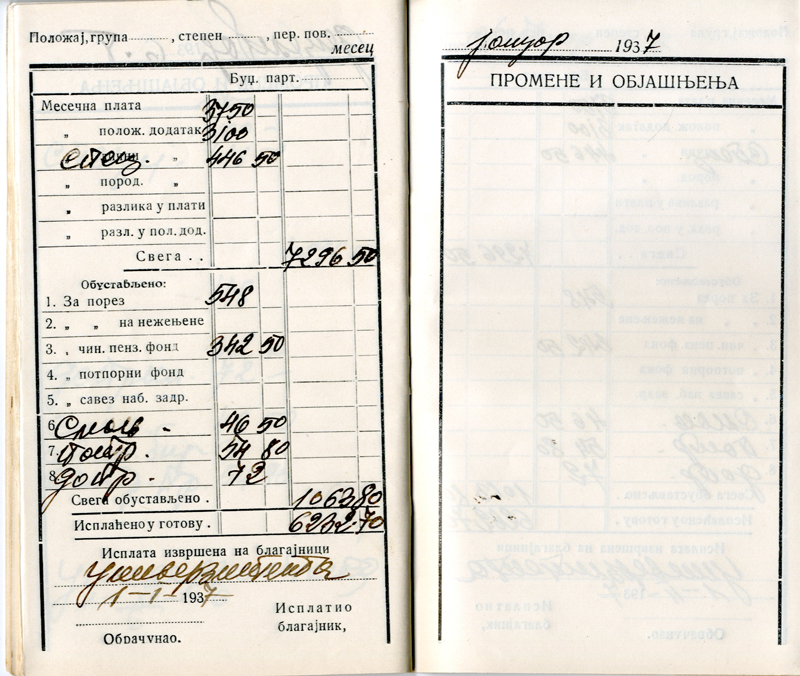 Положај, група , степен , пер. пов.
месец
Буџ. парт.
Месечна плата 3750
„ полож. додатак 3100
„ 446 50
„ пород. „
„ разлика у плати
„ разл. у пол. дод.
Свега . . 7296 50
Обустављено:
1. За порез 548
2. „ „ на нежењене
3. „ чин. пенз. фонд 342 50
4. „ потпорни фонд
5. „ савез наб. задр.
6. 46 50
7. 54 80
8. 72
Свега обустављено . 1063 80
Исплаћено у готову . 6232 70
Исплата извршена на благајници
Универзитета
1-1-1937
Исплатио
благајник,
Обрачунао.
јануар 1937
ПРОМЕНЕ И ОБЈАШЊЕЊА